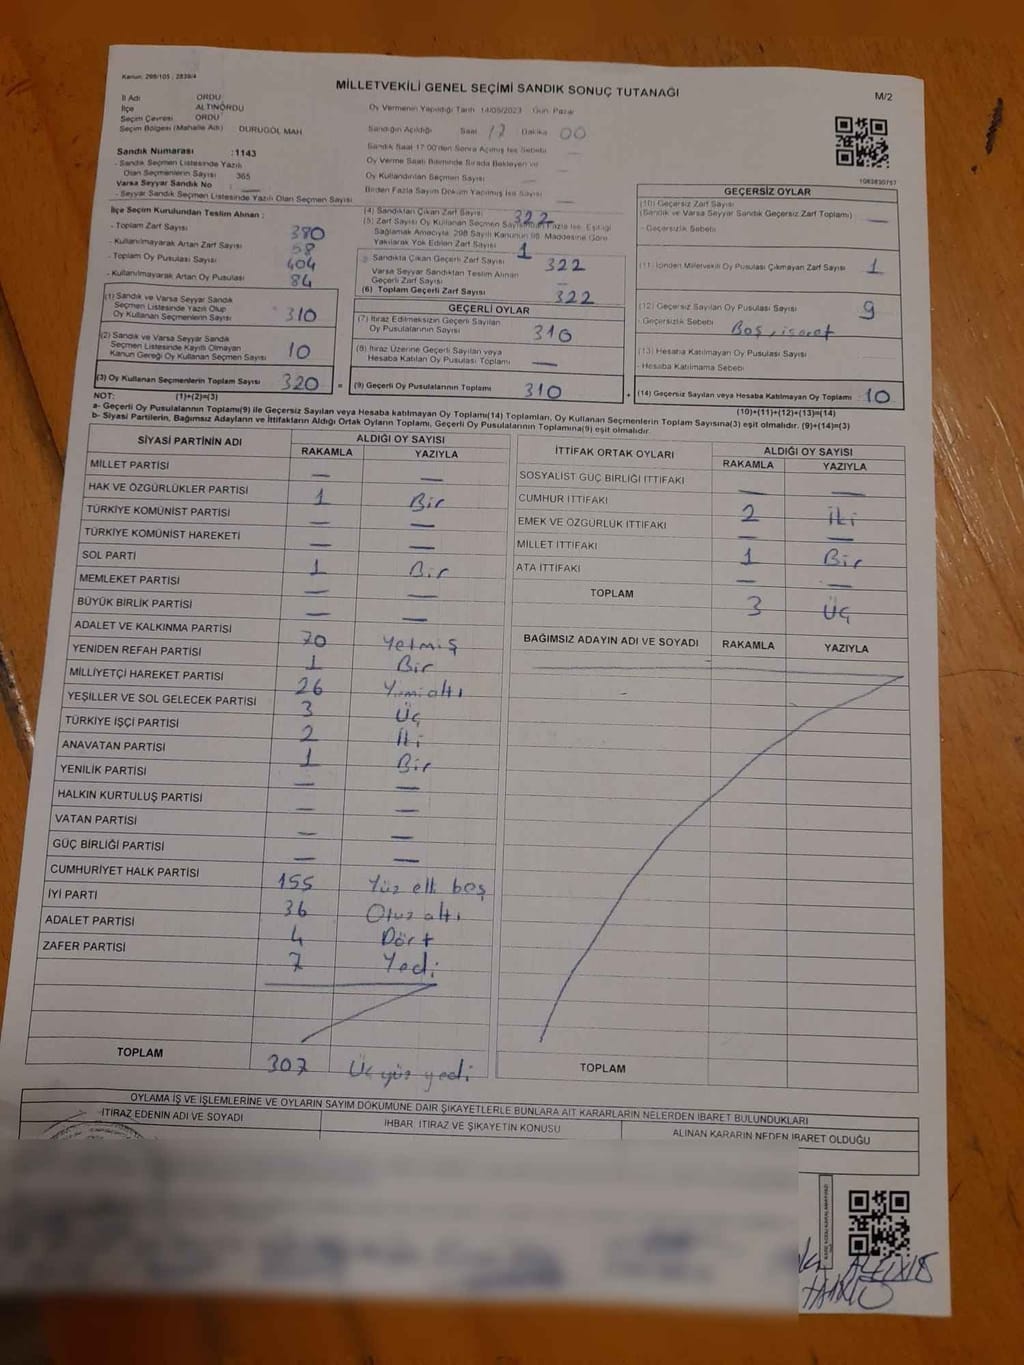 Kanun: 298/105 ; 2839/4
MİLLETVEKİLİ GENEL SEÇİMİ SANDIK SONUÇ TUTANAĞI
M/2
İl Adı ORDU
İlçe ALTINORDU
Seçim Çevresi ORDU
Seçim Bölgesi (Mahalle Adı) DURUGÖL MAH
Oy Vermenin Yapıldığı Tarih 14/05/2023 Gün Pazar
Sandığın Açıldığı Saat 17 Dakika 00
Sandık Saat 17:00'den Sonra Açılmış İse Sebebi —
Oy Verme Saati Bitiminde Sırada Bekleyen ve
Oy Kullandırılan Seçmen Sayısı —
Birden Fazla Sayım Döküm Yapılmış İse Sayısı —
Sandık Numarası :1143
- Sandık Seçmen Listesinde Yazılı
Olan Seçmenlerin Sayısı 365
Varsa Seyyar Sandık No : —
- Seyyar Sandık Seçmen Listesinde Yazılı Olan Seçmen Sayısı
1083830757
İlçe Seçim Kurulundan Teslim Alınan :
- Toplam Zarf Sayısı 380
- Kullanılmayarak Artan Zarf Sayısı 58
- Toplam Oy Pusulası Sayısı 404
- Kullanılmayarak Artan Oy Pusulası 84
(1) Sandık ve Varsa Seyyar Sandık
Seçmen Listesinde Yazılı Olup
Oy Kullanan Seçmenlerin Sayısı 310
(2) Sandık ve Varsa Seyyar Sandık
Seçmen Listesinde Kayıtlı Olmayan
Kanun Gereği Oy Kullanan Seçmen Sayısı 10
(3) Oy Kullanan Seçmenlerin Toplam Sayısı 320 =
(4) Sandıktan Çıkan Zarf Sayısı 322
(5) Zarf Sayısı Oy Kullanan Seçmen Sayısından Fazla İse, Eşitliği
Sağlamak Amacıyla, 298 Sayılı Kanunun 98. Maddesine Göre
Yakılarak Yok Edilen Zarf Sayısı 1
Sandıkta Çıkan Geçerli Zarf Sayısı 322
Varsa Seyyar Sandıktan Teslim Alınan
Geçerli Zarf Sayısı —
(6) Toplam Geçerli Zarf Sayısı 322
GEÇERLİ OYLAR
(7) İtiraz Edilmeksizin Geçerli Sayılan
Oy Pusulalarının Sayısı 310
(8) İtiraz Üzerine Geçerli Sayılan veya
Hesaba Katılan Oy Pusulası Toplamı —
(9) Geçerli Oy Pusulalarının Toplamı 310 +
GEÇERSİZ OYLAR
(10) Geçersiz Zarf Sayısı
(Sandık ve Varsa Seyyar Sandık Geçersiz Zarf Toplamı) —
- Geçersizlik Sebebi
(11) İçinden Milletvekili Oy Pusulası Çıkmayan Zarf Sayısı 1
(12) Geçersiz Sayılan Oy Pusulası Sayısı 9
- Geçersizlik Sebebi Boş, işaret
(13) Hesaba Katılmayan Oy Pusulası Sayısı
- Hesaba Katılmama Sebebi
(14) Geçersiz Sayılan veya Hesaba Katılmayan Oy Toplamı 10
NOT: (1)+(2)=(3)
(10)+(11)+(12)+(13)=(14)
a- Geçerli Oy Pusulalarının Toplamı(9) ile Geçersiz Sayılan veya Hesaba katılmayan Oy Toplamı(14) Toplamları, Oy Kullanan Seçmenlerin Toplam Sayısına(3) eşit olmalıdır. (9)+(14)=(3)
b- Siyasi Partilerin, Bağımsız Adayların ve İttifakların Aldığı Ortak Oyların Toplamı, Geçerli Oy Pusulalarının Toplamına(9) eşit olmalıdır.
SİYASİ PARTİNİN ADI ALDIĞI OY SAYISI
RAKAMLA YAZIYLA
MİLLET PARTİSİ — —
HAK VE ÖZGÜRLÜKLER PARTİSİ 1 Bir
TÜRKİYE KOMÜNİST PARTİSİ — —
TÜRKİYE KOMÜNİST HAREKETİ — —
SOL PARTİ 1 Bir
MEMLEKET PARTİSİ — —
BÜYÜK BİRLİK PARTİSİ — —
ADALET VE KALKINMA PARTİSİ 70 Yetmiş
YENİDEN REFAH PARTİSİ 1 Bir
MİLLİYETÇİ HAREKET PARTİSİ 26 Yirmialtı
YEŞİLLER VE SOL GELECEK PARTİSİ 3 Üç
TÜRKİYE İŞÇİ PARTİSİ 2 İki
ANAVATAN PARTİSİ 1 Bir
YENİLİK PARTİSİ — —
HALKIN KURTULUŞ PARTİSİ — —
VATAN PARTİSİ — —
GÜÇ BİRLİĞİ PARTİSİ — —
CUMHURİYET HALK PARTİSİ 155 Yüz elli beş
İYİ PARTİ 36 Otuz altı
ADALET PARTİSİ 4 Dört
ZAFER PARTİSİ 7 Yedi
TOPLAM 307 Üçyüz yedi
İTTİFAK ORTAK OYLARI ALDIĞI OY SAYISI
RAKAMLA YAZIYLA
SOSYALİST GÜÇ BİRLİĞİ İTTİFAKI — —
CUMHUR İTTİFAKI 2 İki
EMEK VE ÖZGÜRLÜK İTTİFAKI — —
MİLLET İTTİFAKI 1 Bir
ATA İTTİFAKI — —
TOPLAM 3 Üç
BAĞIMSIZ ADAYIN ADI VE SOYADI RAKAMLA YAZIYLA
TOPLAM
OYLAMA İŞ VE İŞLEMLERİNE VE OYLARIN SAYIM DÖKÜMÜNE DAİR ŞİKAYETLERLE BUNLARA AİT KARARLARIN NELERDEN İBARET BULUNDUKLARI
İTİRAZ EDENİN ADI VE SOYADI
İHBAR, İTİRAZ VE ŞİKAYETİN KONUSU
ALINAN KARARIN NEDEN İBARET OLDUĞU